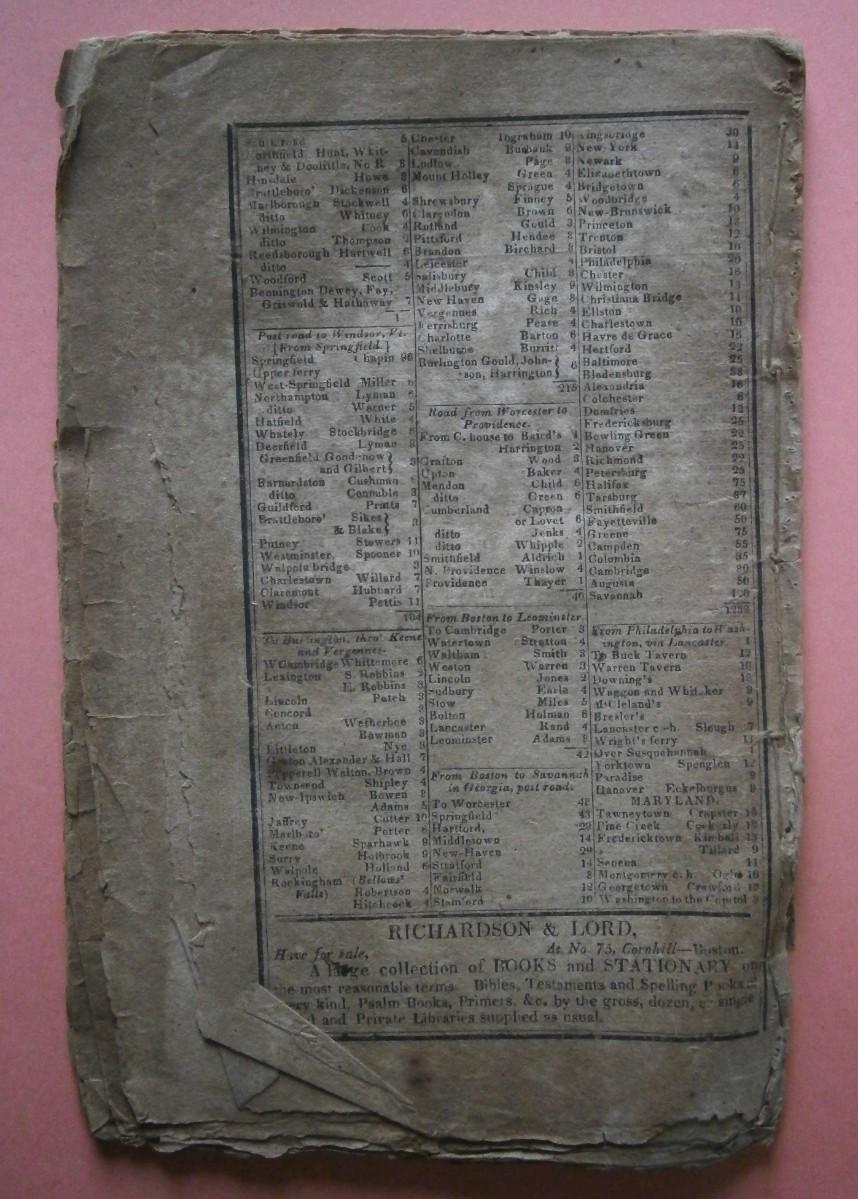 Northfield Hunt, Whit-
ney & Doolittle, No R 8
Hinsdale Howe 8
Brattleboro' Dickenson 6
Marlborough Stockwell 4
ditto Whitney 6
Wilmington Cook 3
ditto Thompson
Reedsborough Hartwell 6
ditto —— 4
Woodford Scott 5
Bennington Dewey, Fay,
Griswold & Hathaway 7
Post road to Windsor, Vt.
[From Springfield.]
Springfield Chapin
Upper ferry
West-Springfield Miller 6
Northampton Lyman 6
ditto Warner 5
Hatfield White 4
Whately Stockbridge
Deerfield Lyman 8
Greenfield Goodenow
and Gilbert
Barnardston Cushman
ditto Connable 3
Guildford Pratts 7
Brattleboro' Sikes
& Blake
Putney Stowers 11
Westminster, Spooner 10
Walpole bridge 3
Charlestown Willard 7
Claremont Hubbard 7
Windsor Pettis 11
104
To Burlington, thro' Keene
and Vergennes.
W Cambridge Whittemore 6
Lexington S. Robbins
E. Robbins 3
Lincoln Patch 3
Concord
Acton Wetherbee 3
Bowman
Littleton Nye
Groton Alexander & Hall 7
Pepperell Walton, Brown 4
Townsend Shipley 4
New-Ipswich Bowen 8
Adams 5
Jaffrey Cutter 10
Marlboro' Porter 6
Keene Sparhawk 9
Surry Holbrook 9
Walpole Holland 6
Rockingham (Bellows'
Falls) Robertson 4
Hitchcock 4
Chester Ingraham 10
Cavendish Busbank 9
Ludlow Page 8
Mount Holley Green 4
Sprague 4
Shrewsbury Finney 5
Clarendon Brown 6
Rutland Gould 3
Pittsford Hendee 8
Brandon Birchard 8
Leicester
Salisbury Child 8
Middlebury Kinsley 9
New Haven Gage 8
Vergennes Rich 4
Ferrisburg Pease 4
Charlotte Barton 6
Shelburne Burritt 4
Burlington Gould, John-
son, Harrington 6
215
Road from Worcester to
Providence.
From C. house to Baird's 4
Harrington 2
Grafton Wood 3
Upton Baker 4
Mendon Child 6
ditto Green 6
Cumberland Capron
or Lovet 6
ditto Jenks 4
ditto Whipple 2
Smithfield Aldrich 1
N. Providence Winslow 4
Providence Thayer 1
From Boston to Leominster.
To Cambridge Porter 3
Watertown Stratton 4
Waltham Smith 3
Weston Warren 3
Lincoln Jones 2
Sudbury Earla 4
Stow Miles 5
Bolton Holman 6
Lancaster Rand 4
Leominster Adams 8
42
From Boston to Savannah
in Georgia, post road.
To Worcester 48
Springfield
Hartford, 29
Middletown 14
New-Haven 29
Stratford 14
Fairfield 8
Norwalk 12
Stamford 10
Kingsbridge 30
New York
Newark 9
Elizabethtown 6
Bridgetown 6
Woodbridge 4
New-Brunswick 10
Princeton
Trenton 12
Bristol 10
Philadelphia 20
Chester 16
Wilmington
Christiana Bridge
Elkton 10
Charlestown 10
Havre de Grace
Hertford
Baltimore 25
Bladensburg 38
Alexandria 16
Colchester
Dumfries
Fredericksburg 25
Bowling Green 22
Hanover 25
Richmond 22
Petersburg 25
Halifax 75
Tarsburg 37
Smithfield 60
Fayetteville 50
Greene 75
Campden 55
Columbia 35
Cambridge 80
Augusta 50
Savannah
From Philadelphia to Wash-
ington, via Lancaster.
To Buck Tavern 12
Warren Tavern 10
Downing's
Waggon and Whitaker 9
McCleland's 9
Bresler's
Lancaster c-h. Slough 7
Wright's ferry
Over Susquehannah 1
Yorktown Spenglen 12
Paradise
Hanover Eckelburgus 8
MARYLAND.
Tawneytown Crapster
Pine Creek Cookerly
Fredericktown Kimball
Tillard 9
Seneca 11
Montgomery c. h. Ogle 10
Georgetown Crawford
Washington to the Capitol 3
RICHARDSON & LORD,
At No 75, Cornhill—Boston.
Have for sale,
A large collection of BOOKS and STATIONARY on
the most reasonable terms Bibles, Testaments and Spelling Books
every kind, Psalm Books, Primers, &c. by the gross, dozen, or single
and Private Libraries supplied as usual.